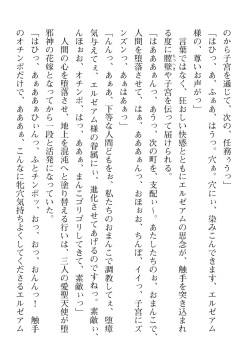 のから子宮を通じて、次の、任務ぅうっ」
「はひっ、あ、ふぁっ、穴ぁっ。穴にぃ、染みこんできます、エルゼアム様の、尊ぃお声がっ」
言葉ではなく、狂おしい快感とともにエルゼアムの思念が、触手を突き込まれる度に膣壁や子宮を伝って届けられる。
「はぁあああぁんっ、あうっ、次の町を、支配ぃ〜。あたしたちのぉ、おまんこで、人間を堕落させ、はぁっ、あぁああぁんっ、おほぉお、ちんぽ、イイっ、子宮にズンズンっ、あぁはぁあっ」
「んんっ、あぁぁあ、下等な人間どもをぉ、私たちのおまんこで調教してぇ、堕瘴気与えてぇ。エルゼアム様の眷属にぃ、進化させてあげるのですねっ。素敵ぃ、んほぉお、オチンポ、はっ、あああっ、まんこゴリゴリしてきて、素敵ぃっ」
人間の心を堕落させ、地上を混沌へと塗り替える行いは、三人の愛聖天使が堕邪神の花嫁となってから一段と活発になっていた。
「はひっ、あぁっはぁぁひぃんっ、ふとチンポッ、おっ、おっ、おんんっ！　触手のオチンポだけで、あああぁっ、こんなに牝穴気持ちよくしてくださるエルゼアム